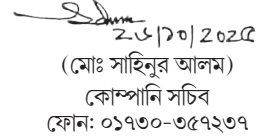 ২৬/১০/২০২৫
(মোঃ সাহিনুর আলম)
কোম্পানি সচিব
ফোন: ০১৭৩০-৩৫৭২৩৭